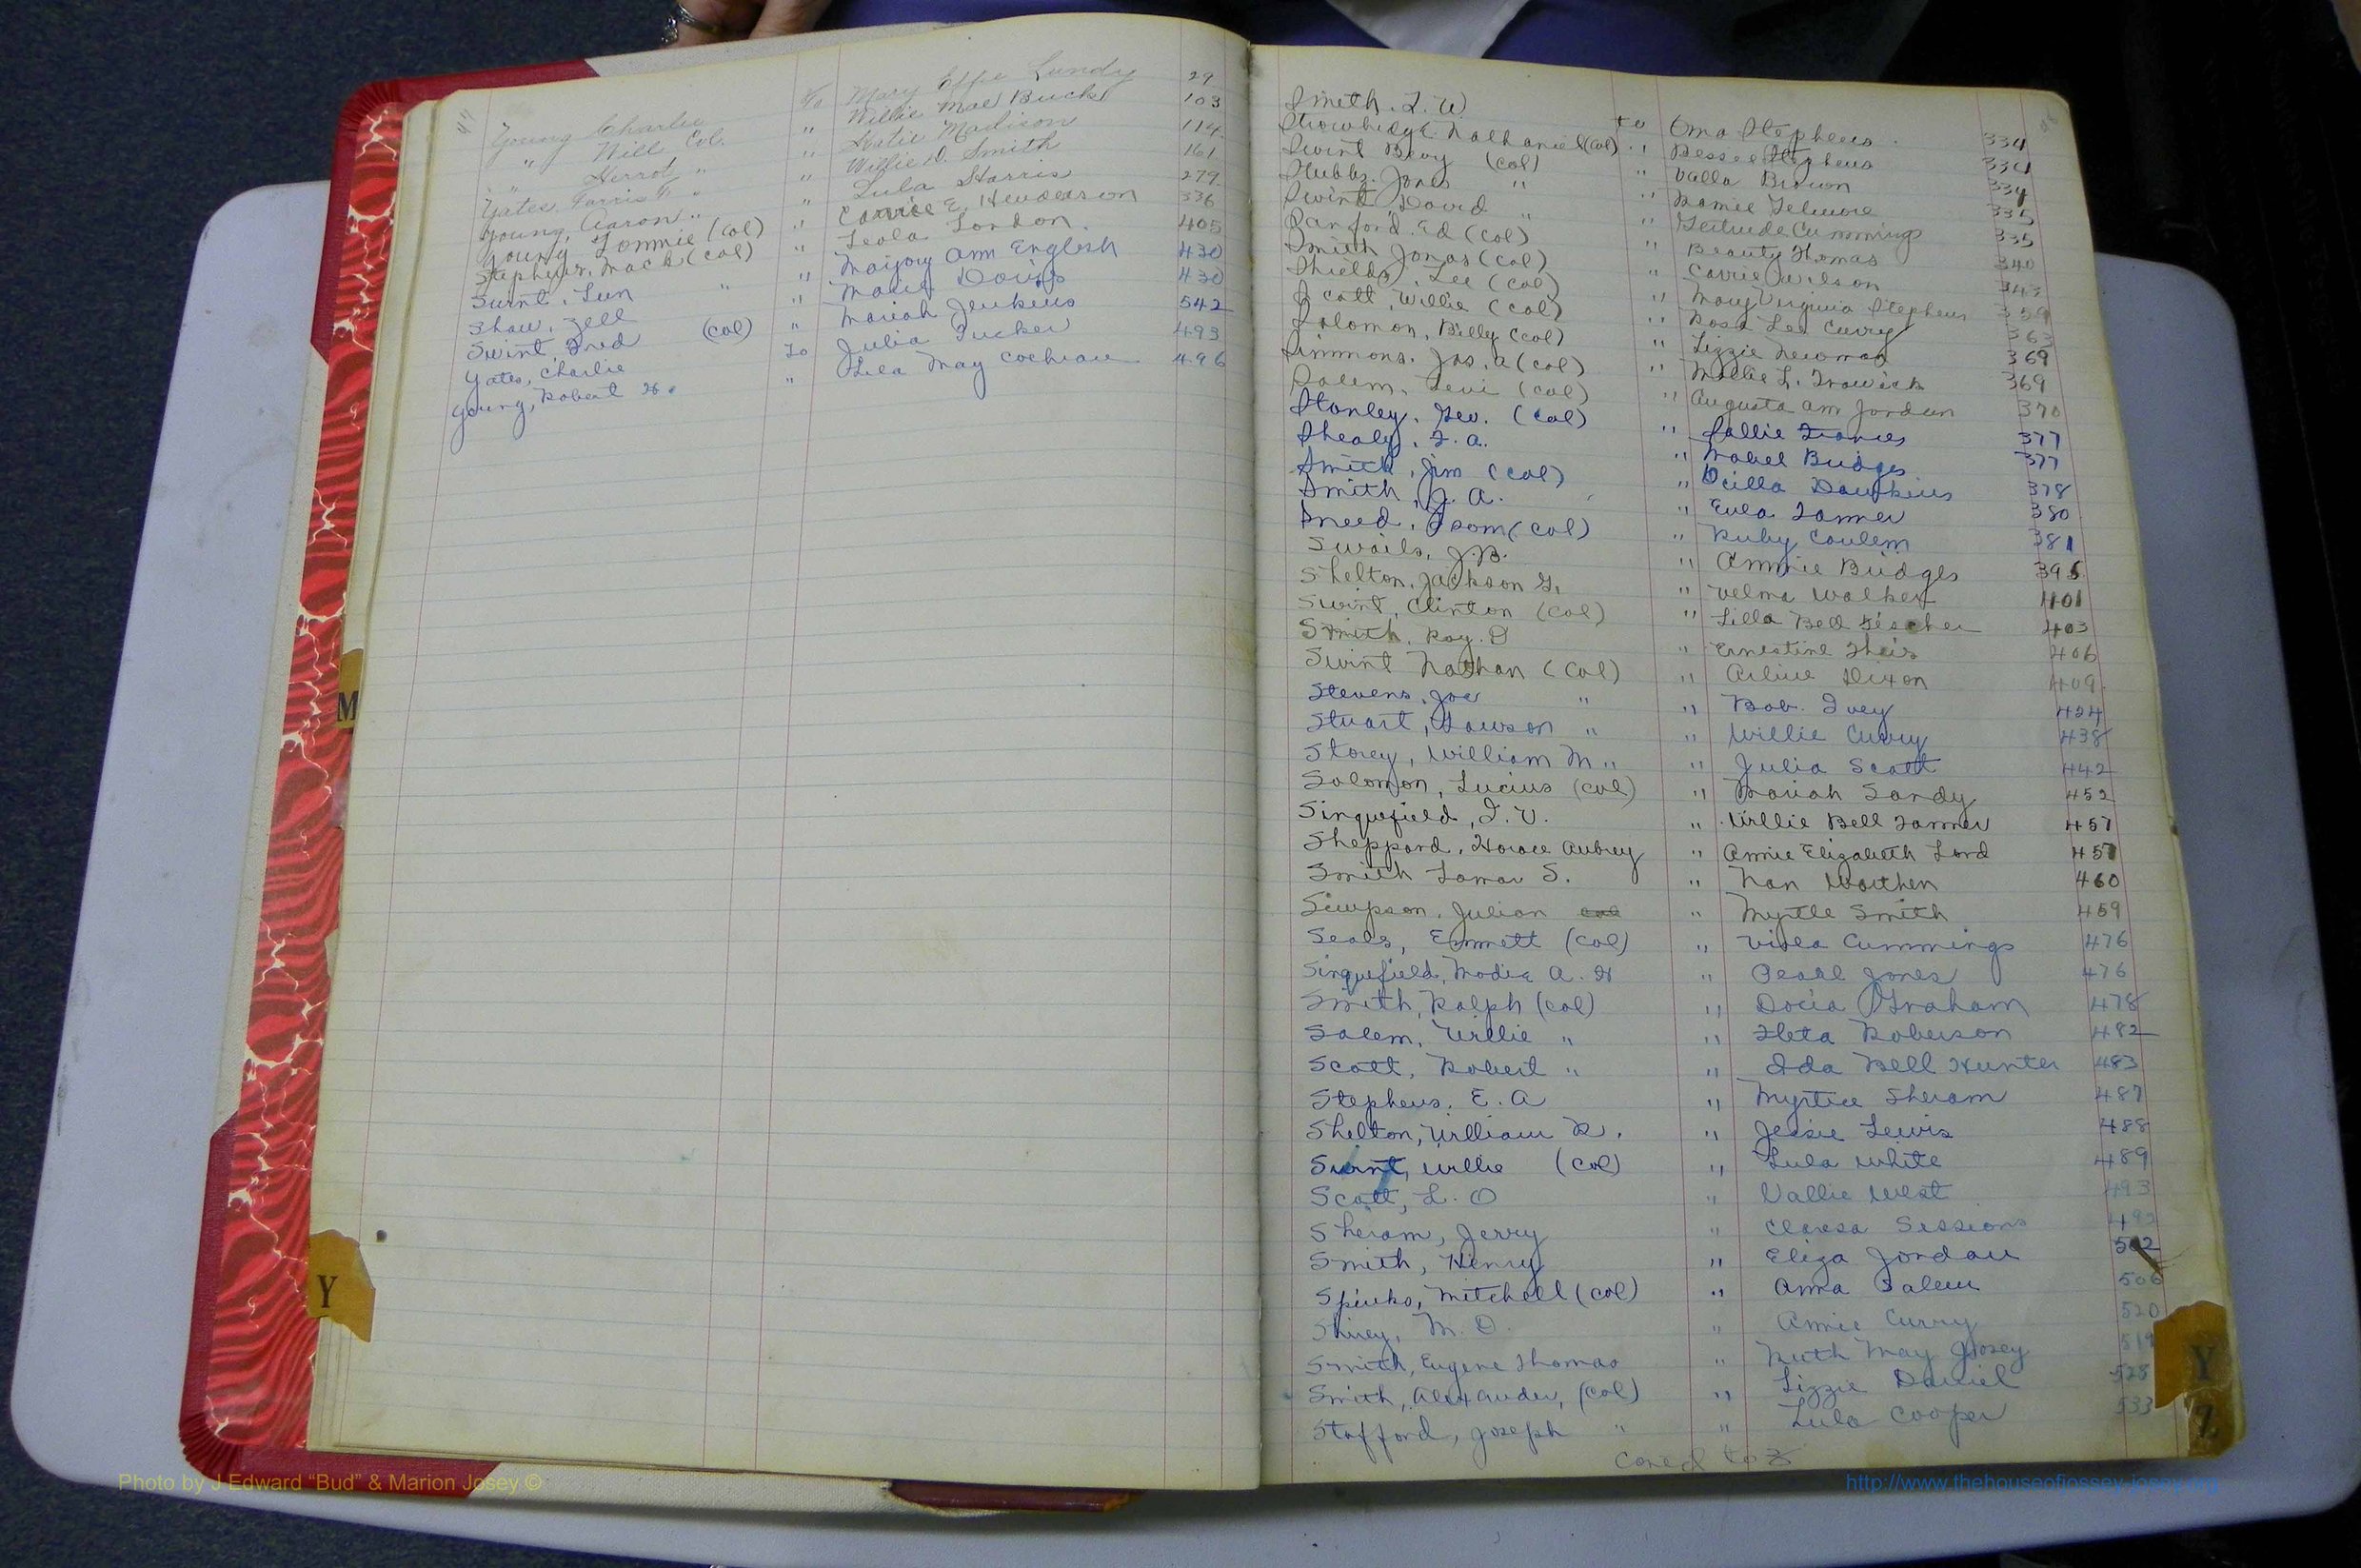 Young Charlie T/o Mary Effie Lundy 29
" Will Col. " Willie Mae Buck 103
" " " Katie Madison 114
Yates, " " Willie D. Smith 161
Young, Aaron " " Lula Harris 279
Young, Tommie (Col) " Carrie E. Henderson 336
Stephens, Mack (Col) " Leola London 405
Swint, " " Marjory Ann English 430
Shaw, Zell " Davis 430
Swint, Fred (Col) " Mariah Jenkins 542
Yates, Charlie To Julia Tucker 493
Young, Robert H. " Lila May Cochran 496
Smith, L. W. to Oma Stephens 334
Nathaniel (Col) " Bessie Stephens 334
Swint Bevy (Col) " Valla Brown 334
Stubbs, Jones " " Mamie 335
Swint David " " Gertrude Cummings 335
Sanford, Ed (Col) " Beauty Thomas 340
Smith Jonas (Col) " Carrie Wilson 343
Shields, Lee (Col) " Mary Virginia Stephens 359
Scott, Willie (Col) " Rosa Lee Curry 363
Solomon, Billy (Col) " Lizzie Newman 369
Simmons, Jas. A (Col) " Mollie L. Trawick 369
Salem, Levi (Col) " Augusta Ann Jordan 370
Stanley, Geo. (Col) " Sallie Francis 377
Shealy, F. A. " Mabel Bridges 377
Smith, Jim (Col) " Ocilla Dawkins 378
Smith, J. A. " Eula Tanner 380
Sneed, Isom (Col) " Ruby Coulem 381
Swails, J.B. " Annie Bridges 395
Shelton, Jackson G. " Velma Walker 401
Swint, Clinton (Col) " Lilla Bell 403
Smith, Roy. D " Ernestine Theis 406
Swint Nathan (Col) " Arline Dixon 409
Stevens, Joe " " Bob. Ivey 424
Stuart, Lawson " " Willie Curry 438
Storey, William M " " Julia Scott 442
Solomon, Lucius (Col) " Mariah Sandy 452
Sinquefield, I. V. " Willie Bell Tanner 457
Sheppard, Horace Aubrey " Annie Elizabeth Lord 457
Smith Lamar S. " Nan Warthen 460
Simpson, Julian Col " Myrtle Smith 459
Seals, Emmett (Col) " Viola Cummings 476
Sinquefield, Modie A. H " Pearl Jones 476
Smith, Ralph (Col) " Docia Graham 478
Salem, Willie " " Fleta Roberson 482
Scott, Robert " " Ida Bell Hunter 483
Stephens, E. A " Myrtice Sheram 487
Shelton, William R. " Jessie Lewis 488
Swint, Willie (Col) " Lula White 489
Scott, L. O " Vallie West 493
Sheram, Jerry " Claresa Sessions
Smith, Henry " Eliza Jordan 502
Spinks, Mitchell (Col) " Anna Salem 506
Shirey, M. D. " Annie Curry 520
Smith, Eugene Thomas " Ruth May Josey 519
Smith, Alexander, (Col) " Lizzie Daniel 528
Stafford, Joseph " " Lula Cooper 533
Coned to Z
M
Y
Y
Z
Photo by J Edward “Bud” & Marion Josey ©
http://www.thehouseofjossey-josey.org